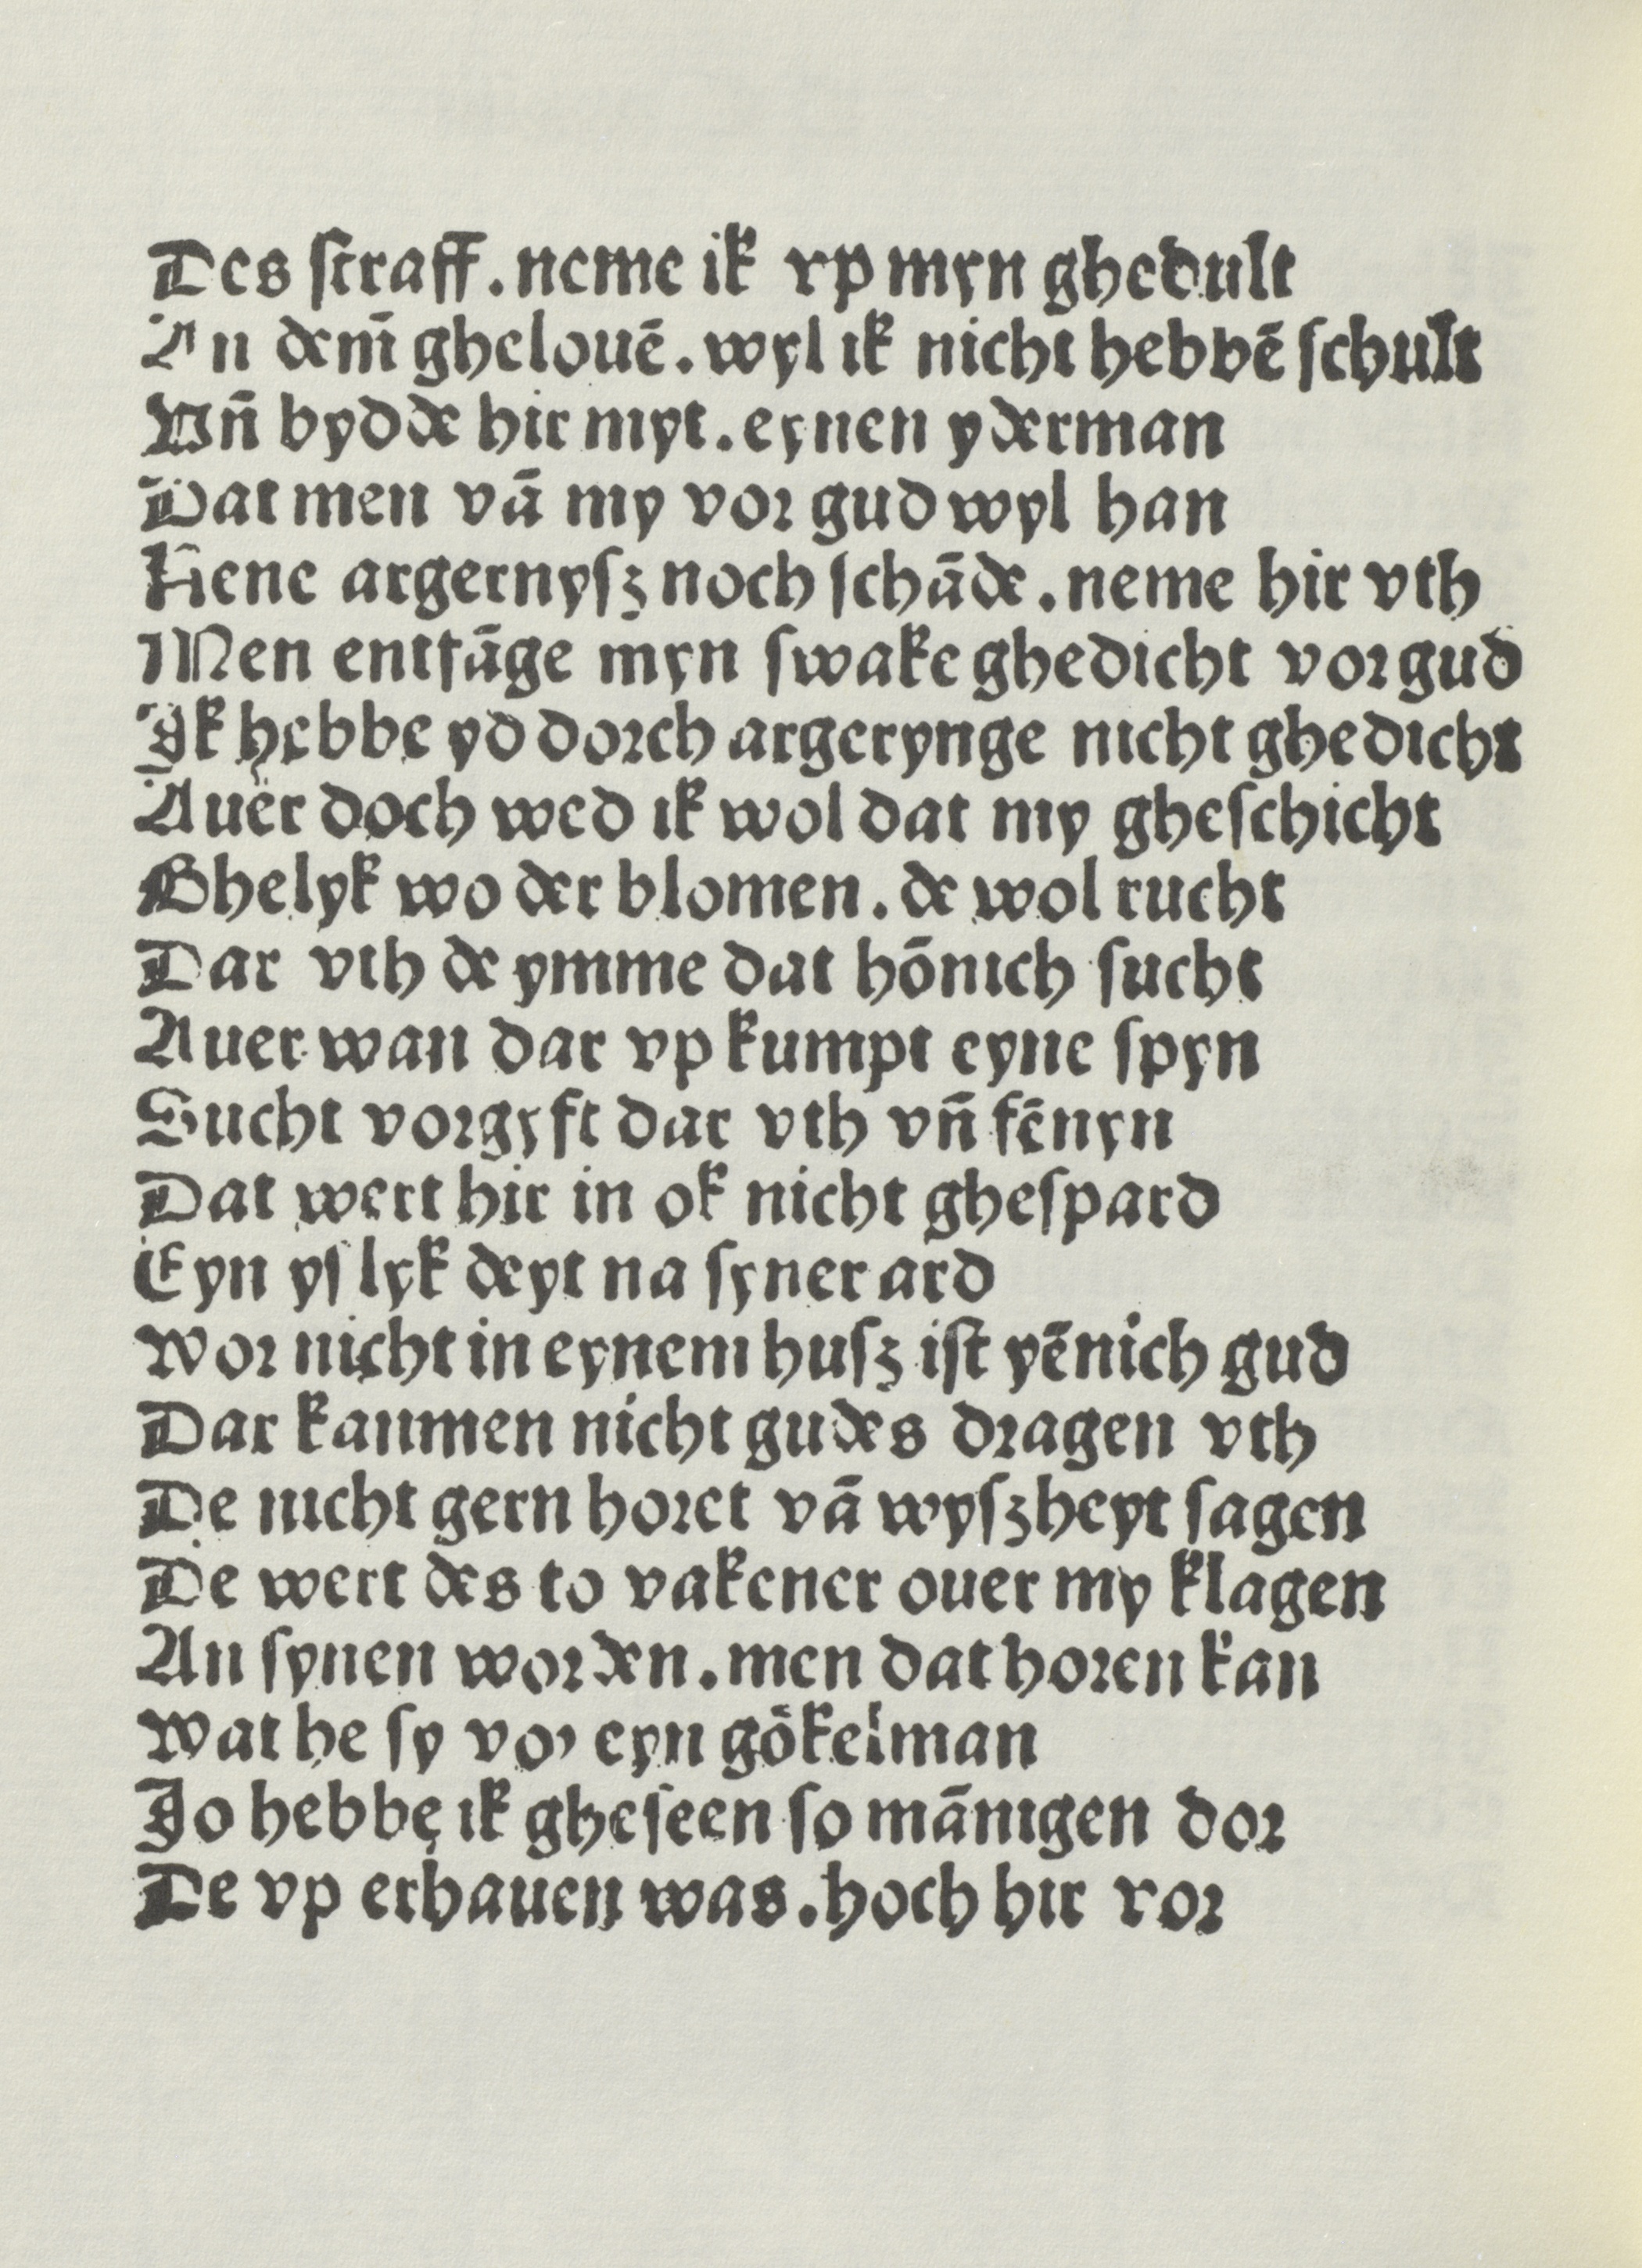 Des ſtraff. neme ik vp myn ghedult
An dem̄ ghelouē. wyl ik nicht hebbē ſchult
Vn̄ bydde hir myt. eynen yderman
Dat men vā my vor gud wyl han
Kene argernyſz noch ſchāde. neme hir vth
Men entfāge myn ſwake ghedicht vor gud
Ik hebbe yd dorch argerynge nicht ghedicht
Auer doch wed ik wol dat my gheſchicht
Ghelyk wo der blomen. de wol rucht
Dar vth de ymme dat hōnich ſucht
Auer wan dar vp kumpt eyne ſpyn
Sucht vorgyft dar vth vn̄ fēnyn
Dat wert hir in ok nicht gheſpard
Eyn yſlyk deyt na ſyner ard
Wor nicht in eynem huſz iſt yēnich gud
Dar kanmen nicht gudes dragen vth
De nicht gern horet vā wyſzheyt ſagen
De wert des to vakener ouer my klagen
An ſynen worden. men dat horen kan
Wat he ſy vor eyn gökelman
Jo hebbe ik gheſeen ſo mānigen dor
De vp erhauen was. hoch hir vor